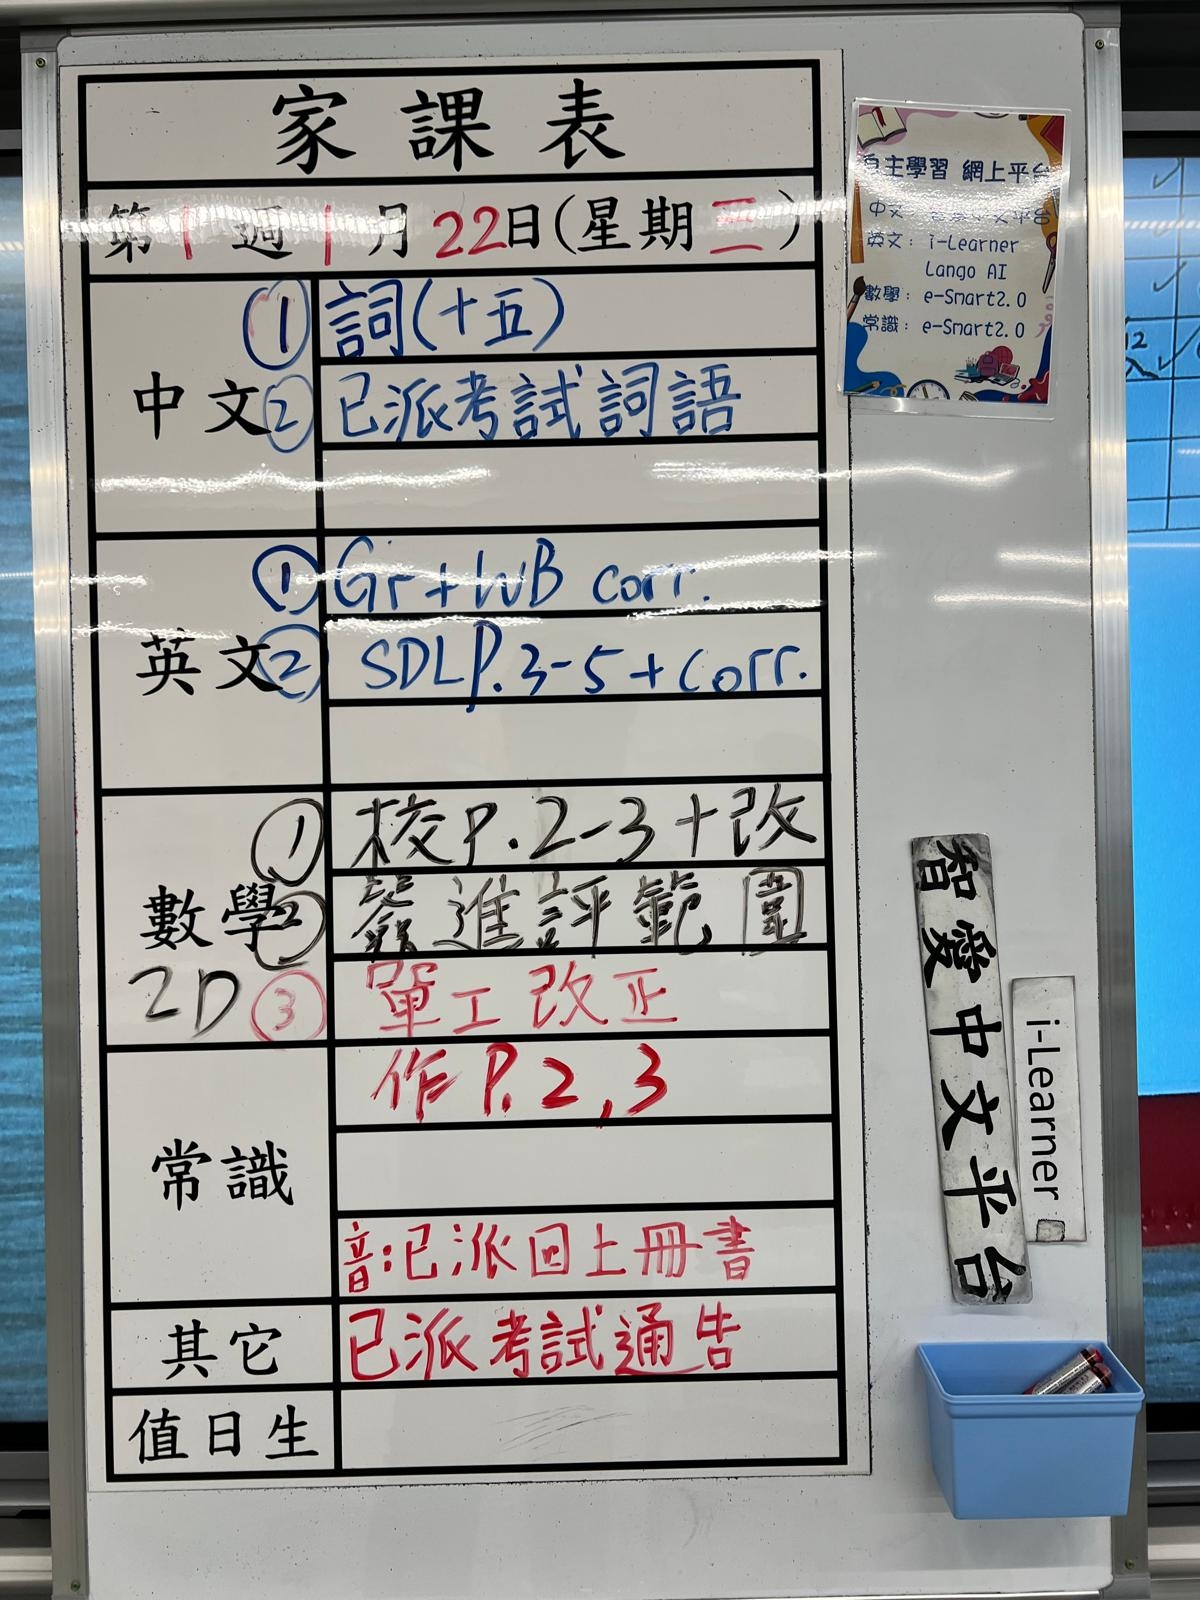 家課表
第1週1月22日(星期三)
中文
① 詞(十五)
② 已派考試詞語
英文
① Gr+WB corr.
② SDL P.3-5+corr.
數學
2D
① 校P.2-3+改
② 簽進評範圍
③ 單工改正
常識
作P.2,3
音:已派回上冊書
其它
已派考試通告
值日生
自主學習 網上平台
中文: 智愛中文平台
英文: i-Learner
Lango AI
數學: e-Smart2.0
常識: e-Smart2.0
智愛中文平台
i-Learner
12